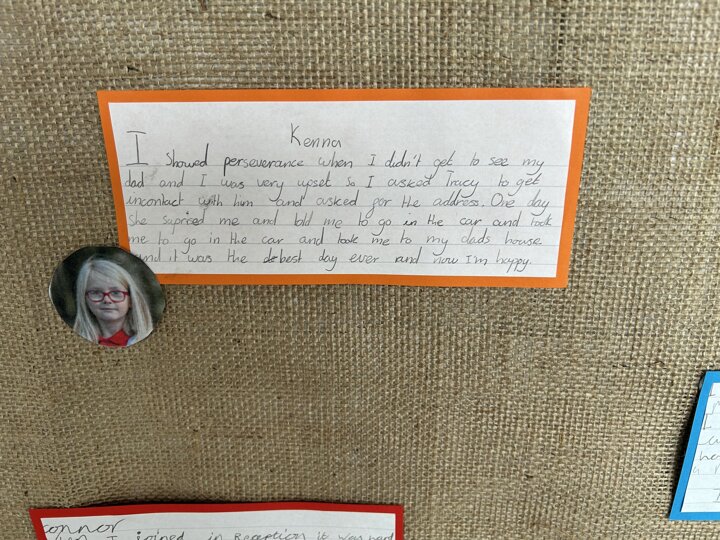 Kenna
I showed perseverance when I didn't get to see my
dad and I was very upset so I asked Tracy to get
incontact with him and asked for the address. One day
she suprised me and told me to go in the car and took
me to go in the car and took me to my dads house
and it was the best day ever and now I'm happy.
connor
I joined in Reception it was hard